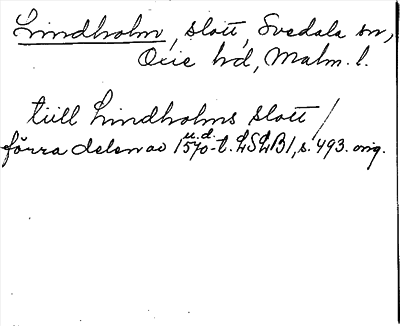 Lindholm, slott, Svedala sn,
Oxie hd, Malm. l.
tiill Lindholms slott /
förra delen av 1570-t. u.d. LSLB1, s. 493. orig.